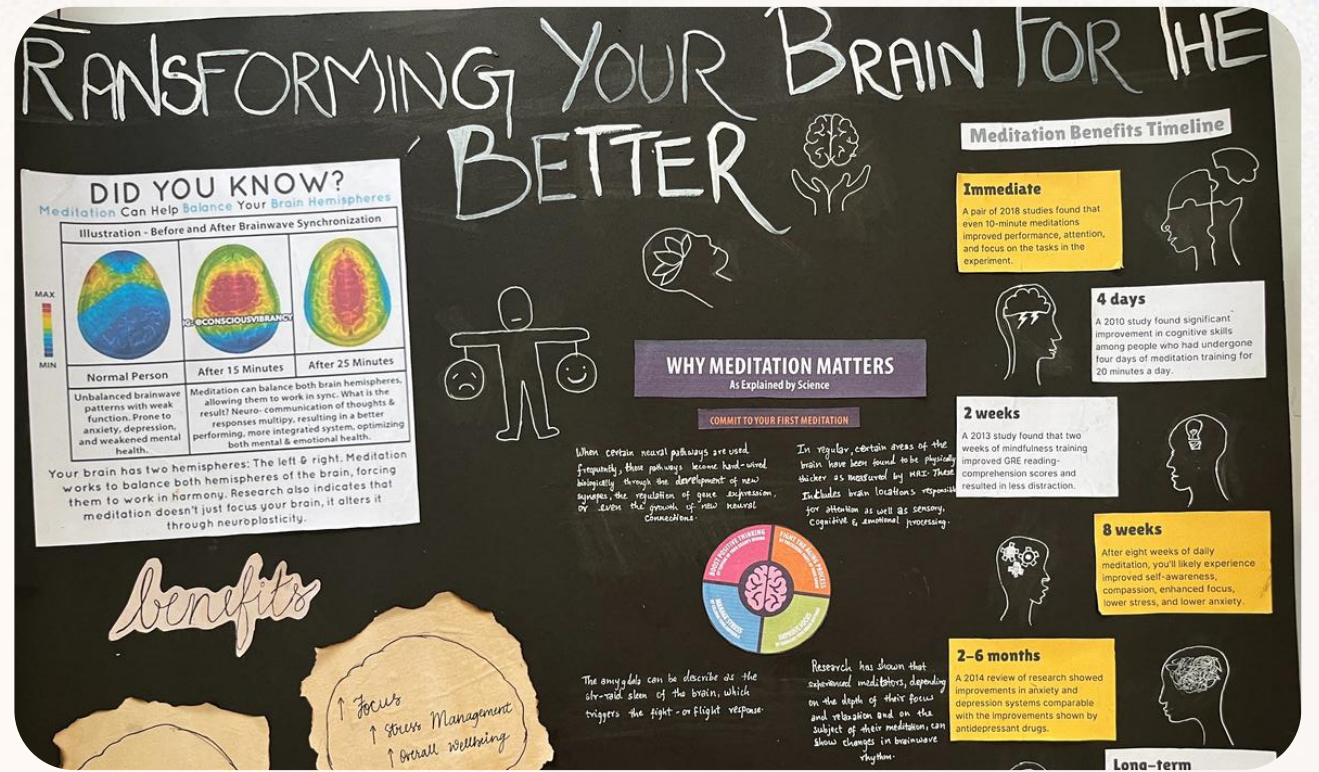 TRANSFORMING YOUR BRAIN FOR THE
BETTER
DID YOU KNOW?
Meditation Can Help Balance Your Brain Hemispheres
Illustration - Before and After Brainwave Synchronization
MAX
MIN
IG: @CONSCIOUSVIBRANCY
Normal Person
After 15 Minutes
After 25 Minutes
Unbalanced brainwave
patterns with weak
function. Prone to
anxiety, depression,
and weakened mental
health.
Meditation can balance both brain hemispheres,
allowing them to work in sync. What is the
result? Neuro- communication of thoughts &
responses multipy, resulting in a better
performing, more integrated system, optimizing
both mental & emotional health.
Your brain has two hemispheres: The left & right. Meditation
works to balance both hemispheres of the brain, forcing
them to work in harmony. Research also indicates that
meditation doesn't just focus your brain, it alters it
through neuroplasticity.
benefits
↑ Focus
↑ Stress Management
↑ Overall Wellbeing
WHY MEDITATION MATTERS
As Explained by Science
COMMIT TO YOUR FIRST MEDITATION
When certain neural pathways are used
frequently, those pathways become hard-wired
biologically through the development of new
synapes, the regulation of gene expression,
or even the growth of new neural
connections.
In regular, certain areas of the
brain have been found to be physically
thicker as measured by MRI. These
Includes brain locations responsible
for attention as well as sensory,
Cognitive & emotional processing.
BOOST POSITIVE THINKING
FIGHT THE AGING PROCESS
MANAGE STRESS
The amygdala can be describe as the
air-raid siren of the brain, which
triggers the fight-or flight response.
Research has shown that
experienced meditators, depending
on the depth of their focus
and relaxation and on the
subject of their meditation, can
show changes in brainwave
rhythm.
Meditation Benefits Timeline
Immediate
A pair of 2018 studies found that
even 10-minute meditations
improved performance, attention,
and focus on the tasks in the
experiment.
4 days
A 2010 study found significant
improvement in cognitive skills
among people who had undergone
four days of meditation training for
20 minutes a day.
2 weeks
A 2013 study found that two
weeks of mindfulness training
improved GRE reading-
comprehension scores and
resulted in less distraction.
8 weeks
After eight weeks of daily
meditation, you'll likely experience
improved self-awareness,
compassion, enhanced focus,
lower stress, and lower anxiety.
2-6 months
A 2014 review of research showed
improvements in anxiety and
depression systems comparable
with the improvements shown by
antidepressant drugs.
Long-term